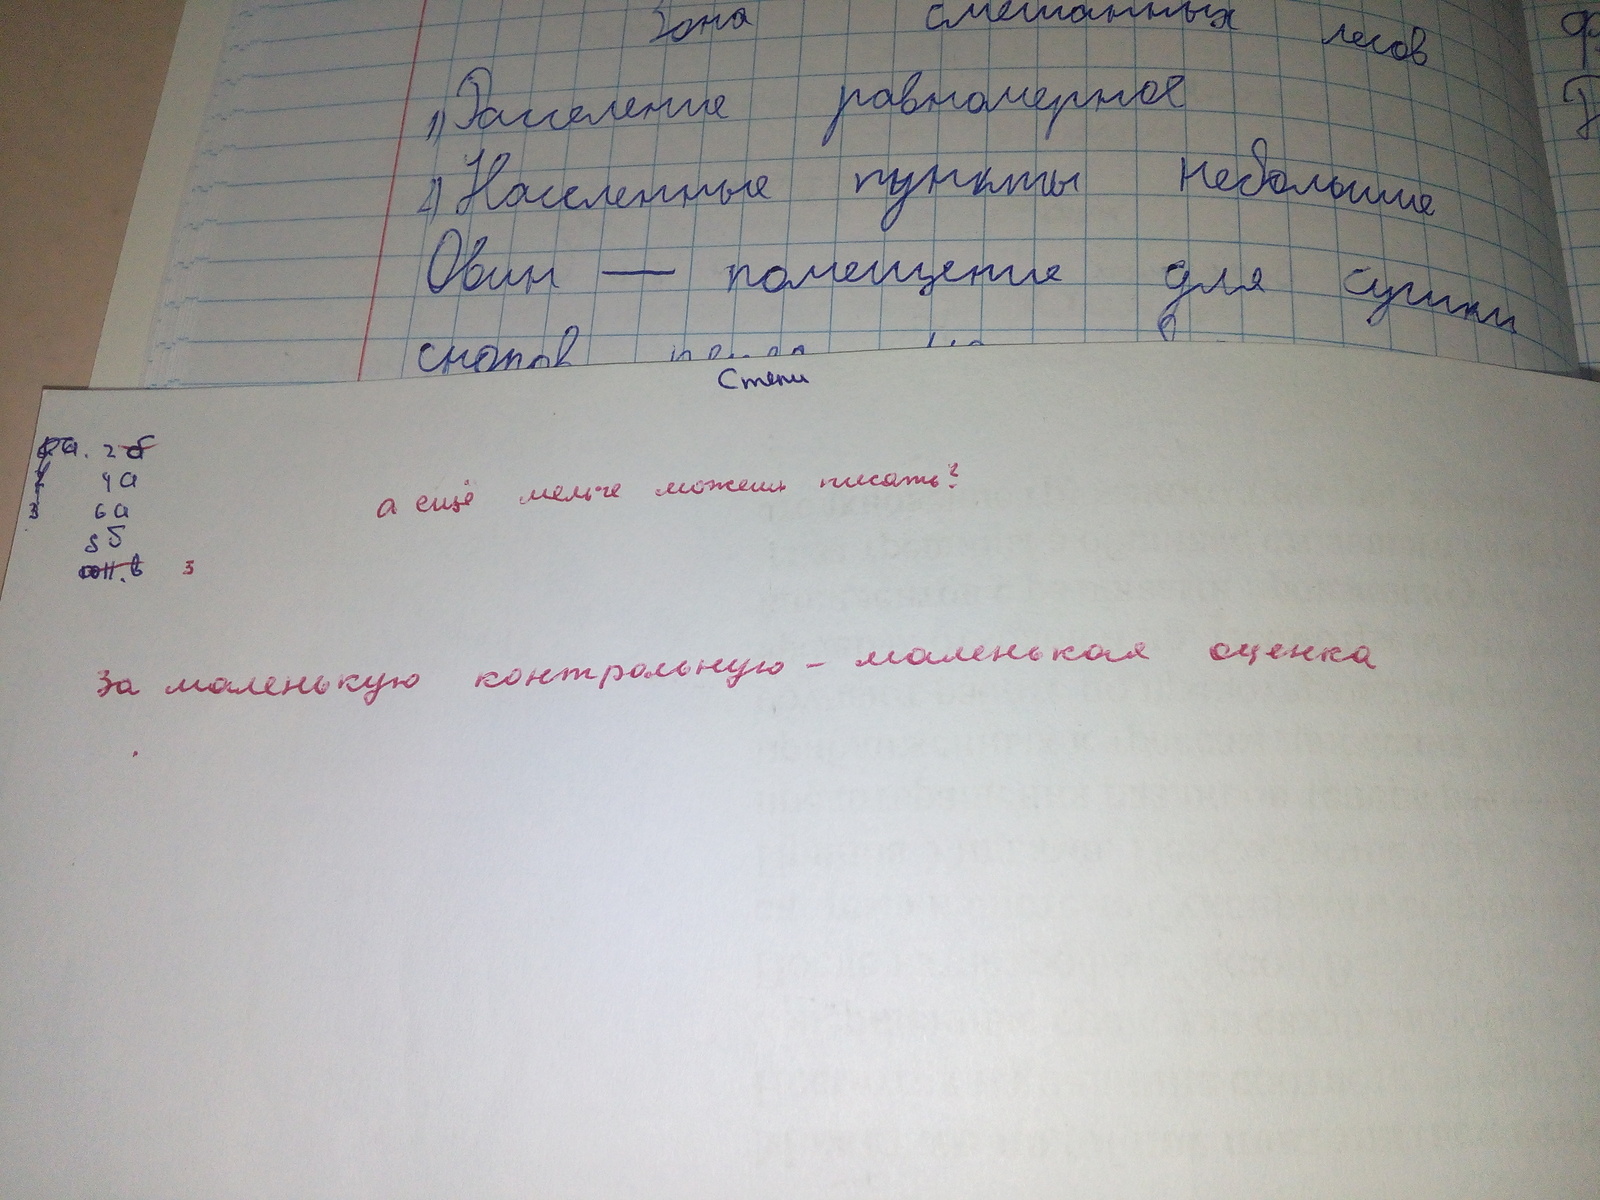 Зона смешанных лесов
1) Расселение равномерное
2) Населенные пункты небольшие
Овин — помещение для сушки
снопов перед
Степи
2б
4а
3 6а
8б
3
а ещё мельче можешь писать?
За маленькую контрольную – маленькая оценка